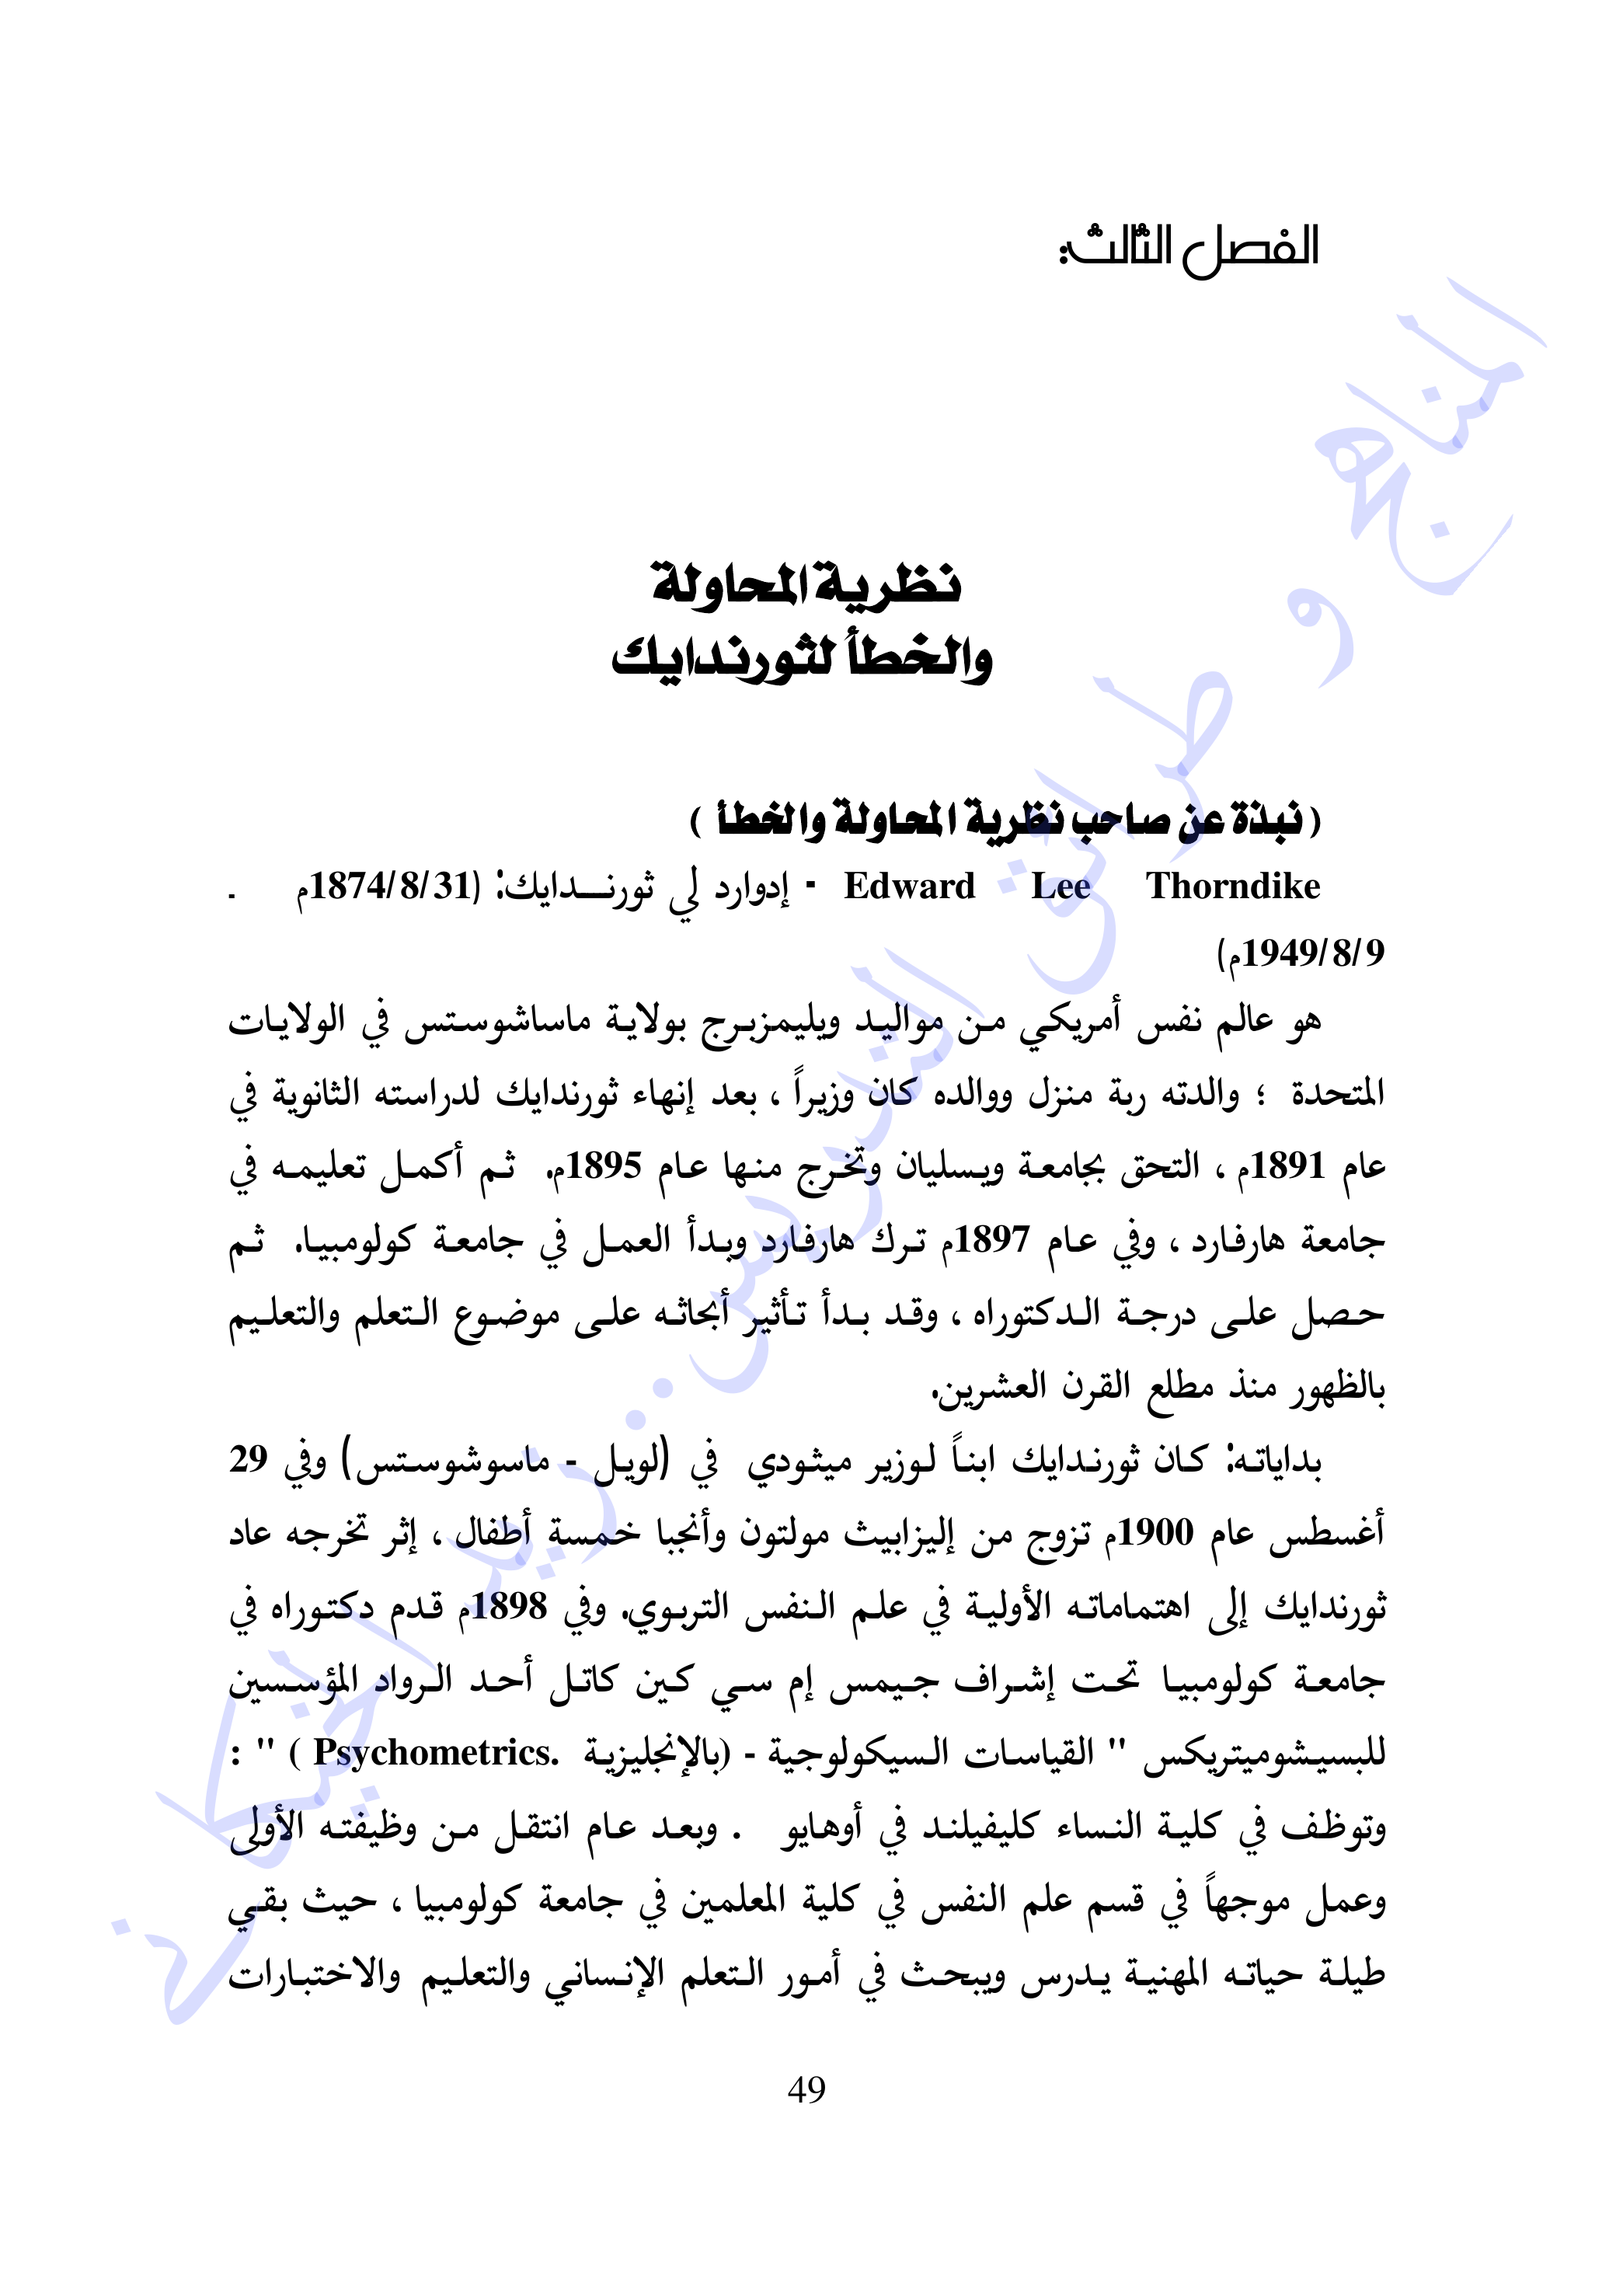 الفصل الثالث:
نظرية المحاولة
والخطأ لثورندايك
( نبذة عن صاحب نظرية المحاولة والخطأ )
Edward Lee Thorndike - إدوارد لي ثورنـــدايك: (1874/8/31م -
1949/8/9م)
هو عالم نفس أمريكي من مواليد ويليمزبرج بولاية ماساشوستس في الولايات
المتحدة ؛ والدته ربة منزل ووالده كان وزيراً ، بعد إنهاء ثورندايك لدراسته الثانوية في
عام 1891م ، التحق بجامعة ويسليان وتخرج منها عام 1895م. ثم أكمل تعليمه في
جامعة هارفارد ، وفي عام 1897م ترك هارفارد وبدأ العمل في جامعة كولومبيا. ثم
حصل على درجة الدكتوراه ، وقد بدأ تأثير أبحاثه على موضوع التعلم والتعليم
بالظهور منذ مطلع القرن العشرين.
بداياته: كان ثورندايك ابناً لوزير ميثودي في (لويل - ماسوشوستس) وفي 29
أغسطس عام 1900م تزوج من إليزابيث مولتون وأنجبا خمسة أطفال ، إثر تخرجه عاد
ثورندايك إلى اهتماماته الأولية في علم النفس التربوي. وفي 1898م قدم دكتوراه في
جامعة كولومبيا تحت إشراف جيمس إم سي كين كاتل أحد الرواد المؤسسين
للبسيشوميتريكس " القياسات السيكولوجية - (بالإنجليزية Psychometrics. ) " :
وتوظف في كلية النساء كليفيلند في أوهايو . وبعد عام انتقل من وظيفته الأولى
وعمل موجهاً في قسم علم النفس في كلية المعلمين في جامعة كولومبيا ، حيث بقي
طيلة حياته المهنية يدرس ويبحث في أمور التعلم الإنساني والتعليم والاختبارات
49
المناهج و طرائق التدريس..ريد الخيكاني